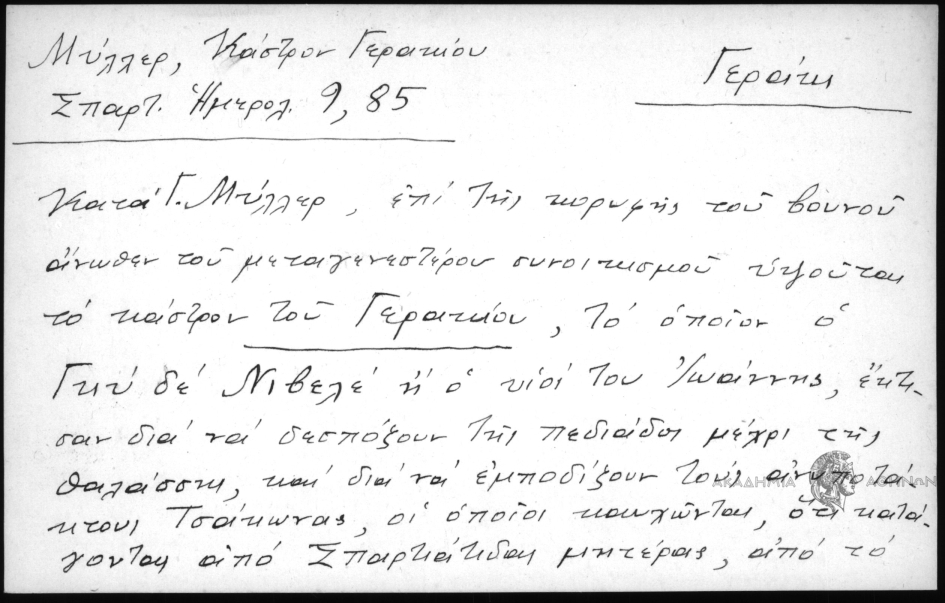 Μύλλερ, Κάστρον Γερακίου
Γεράκι
Σπαρτ. Ἡμερολ. 9, 85
Κατά Γ. Μύλλερ, ἐπί τῆς κορυφῆς τοῦ βουνοῦ
ἄνωθεν τοῦ μεταγενεστέρου συνοικισμοῦ ὑψοῦται
τό κάστρον τοῦ Γερακίου, τό ὁποῖον ὁ
Γκύ δέ Νιβελέ ἤ ὁ υἱός του Ἰωάννης, ἔκτι-
σαν διά νά δεσπόζουν τῆς πεδιάδος μέχρι τῆς
θαλάσσης, καί διά νά ἐμποδίζουν τούς ἀνυποτά-
κτους Τσάκωνας, οἱ ὁποῖοι καυχῶνται, ὅτι κατά-
γονται ἀπό Σπαρτιάτιδας μητέρας, ἀπό τό
ΑΚΑΔΗΜΙΑ ΑΘΗΝΩΝ